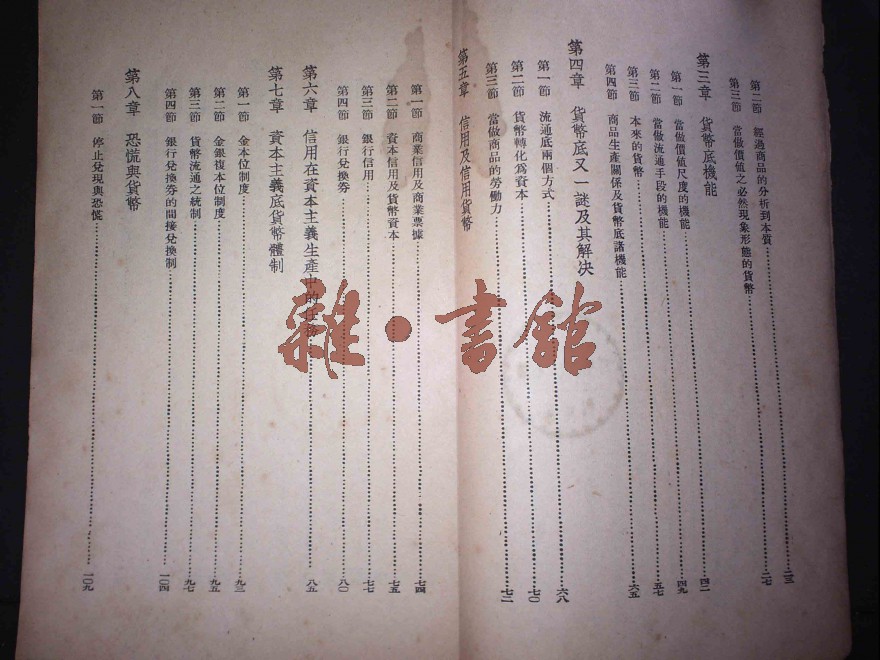 第二節 經過商品的分析到本質 二三
第三節 當做價值之必然現象形態的貨幣 二七
第三章 貨幣底機能 四二
第一節 當做價值尺度的機能 四九
第二節 當做流通手段的機能 五七
第三節 本來的貨幣 六五
第四節 商品生產關係及貨幣底諸機能
第四章 貨幣底又一謎及其解决
第一節 流通底兩個方式 六八
第二節 貨幣轉化爲資本 七〇
第三節 當做商品的勞働力 七二
第五章 信用及信用貨幣
第一節 商業信用及商業票據 七四
第二節 資本信用及貨幣資本 七五
第三節 銀行信用 七七
第四節 銀行兌換券 八〇
第六章 信用在資本主義生產中的 八五
第七章 資本主義底貨幣體制
第一節 金本位制度 九三
第二節 金銀複本位制度 九五
第三節 貨幣流通之統制 九七
第四節 銀行兌換券的間接兌換制 一〇四
第八章 恐慌與貨幣
第一節 停止兌現與恐慌 一〇九
雜·書館